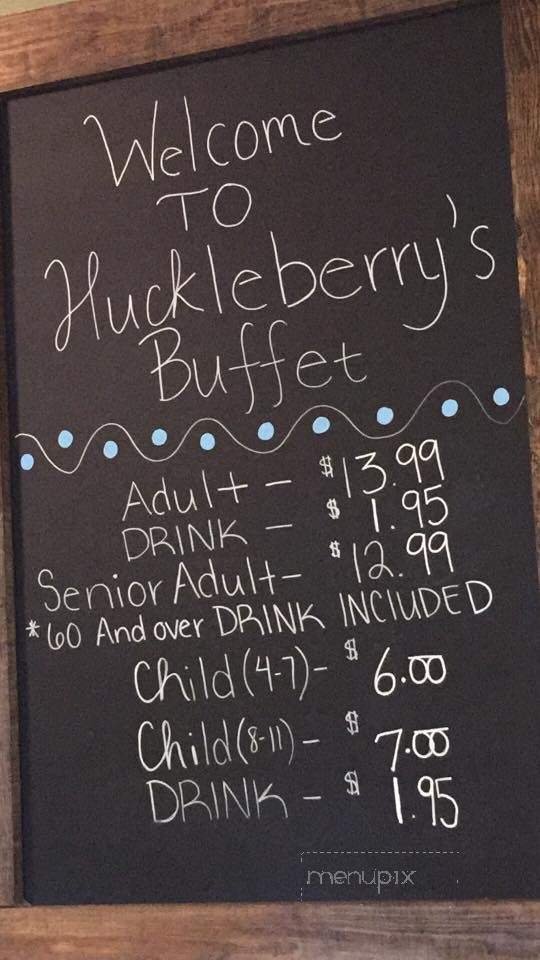 Welcome
TO
Huckleberry's
Buffet
Adult - $13.99
DRINK - $1.95
Senior Adult- $12.99
*60 And over DRINK INCLUDED
Child (4-7)- $6.00
Child (8-11)- $7.00
DRINK - $1.95
menupix